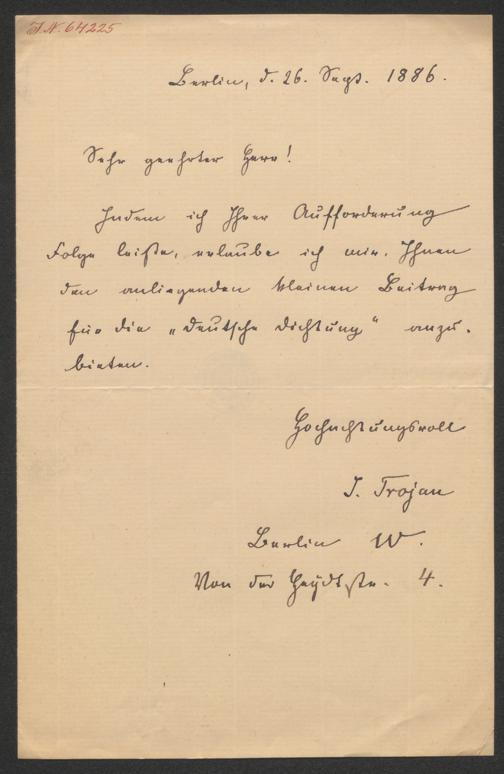 I.N. 64225
Berlin, d. 26. Sept. 1886.
Sehr geehrter Herr!
Indem ich Ihrer Aufforderung
Folge leiste, erlaube ich mir, Ihnen
den anliegenden kleinen Beitrag
für die „Deutsche Dichtung“ anzu-
bieten.
Hochachtungsvoll
J. Trojan
Berlin W.
Von der Heydtstr. 4.